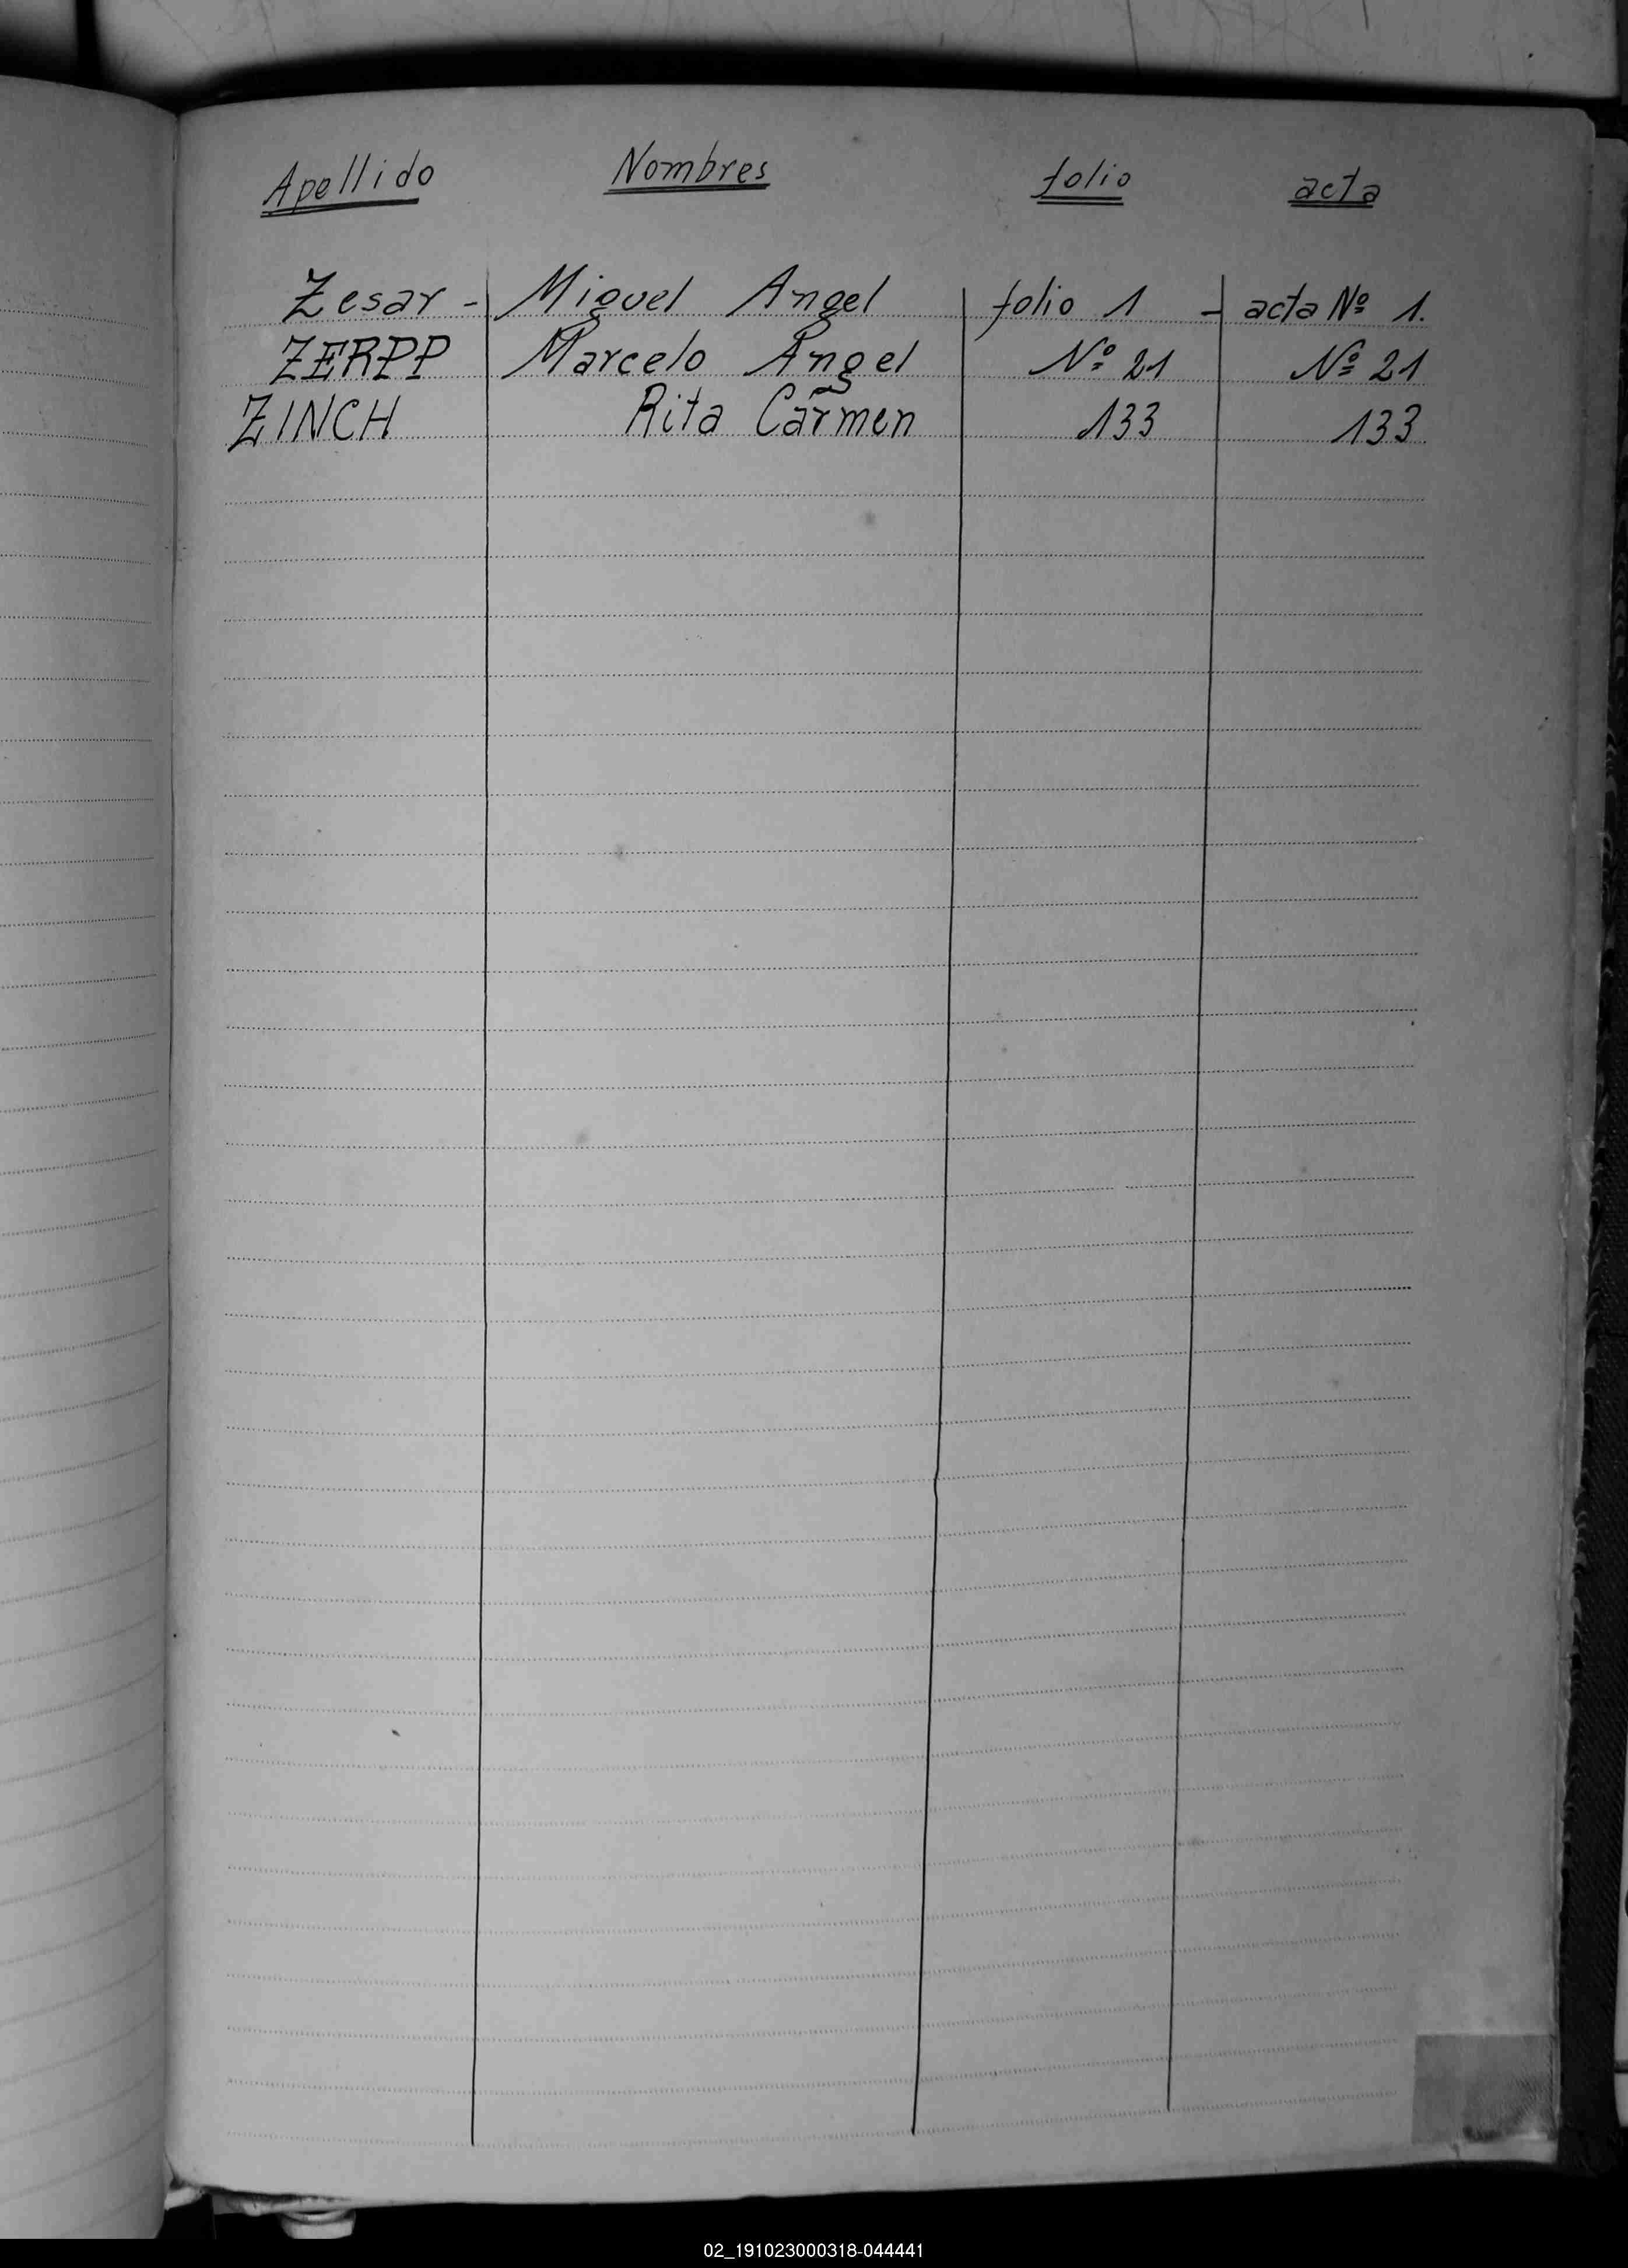 Apellido Nombres folio acta
Zesar - Miguel Angel folio 1 - acta Nº 1.
ZERPP Marcelo Angel Nº 21 Nº 21
ZINCH Rita Carmen 133 133
02_191023000318-044441